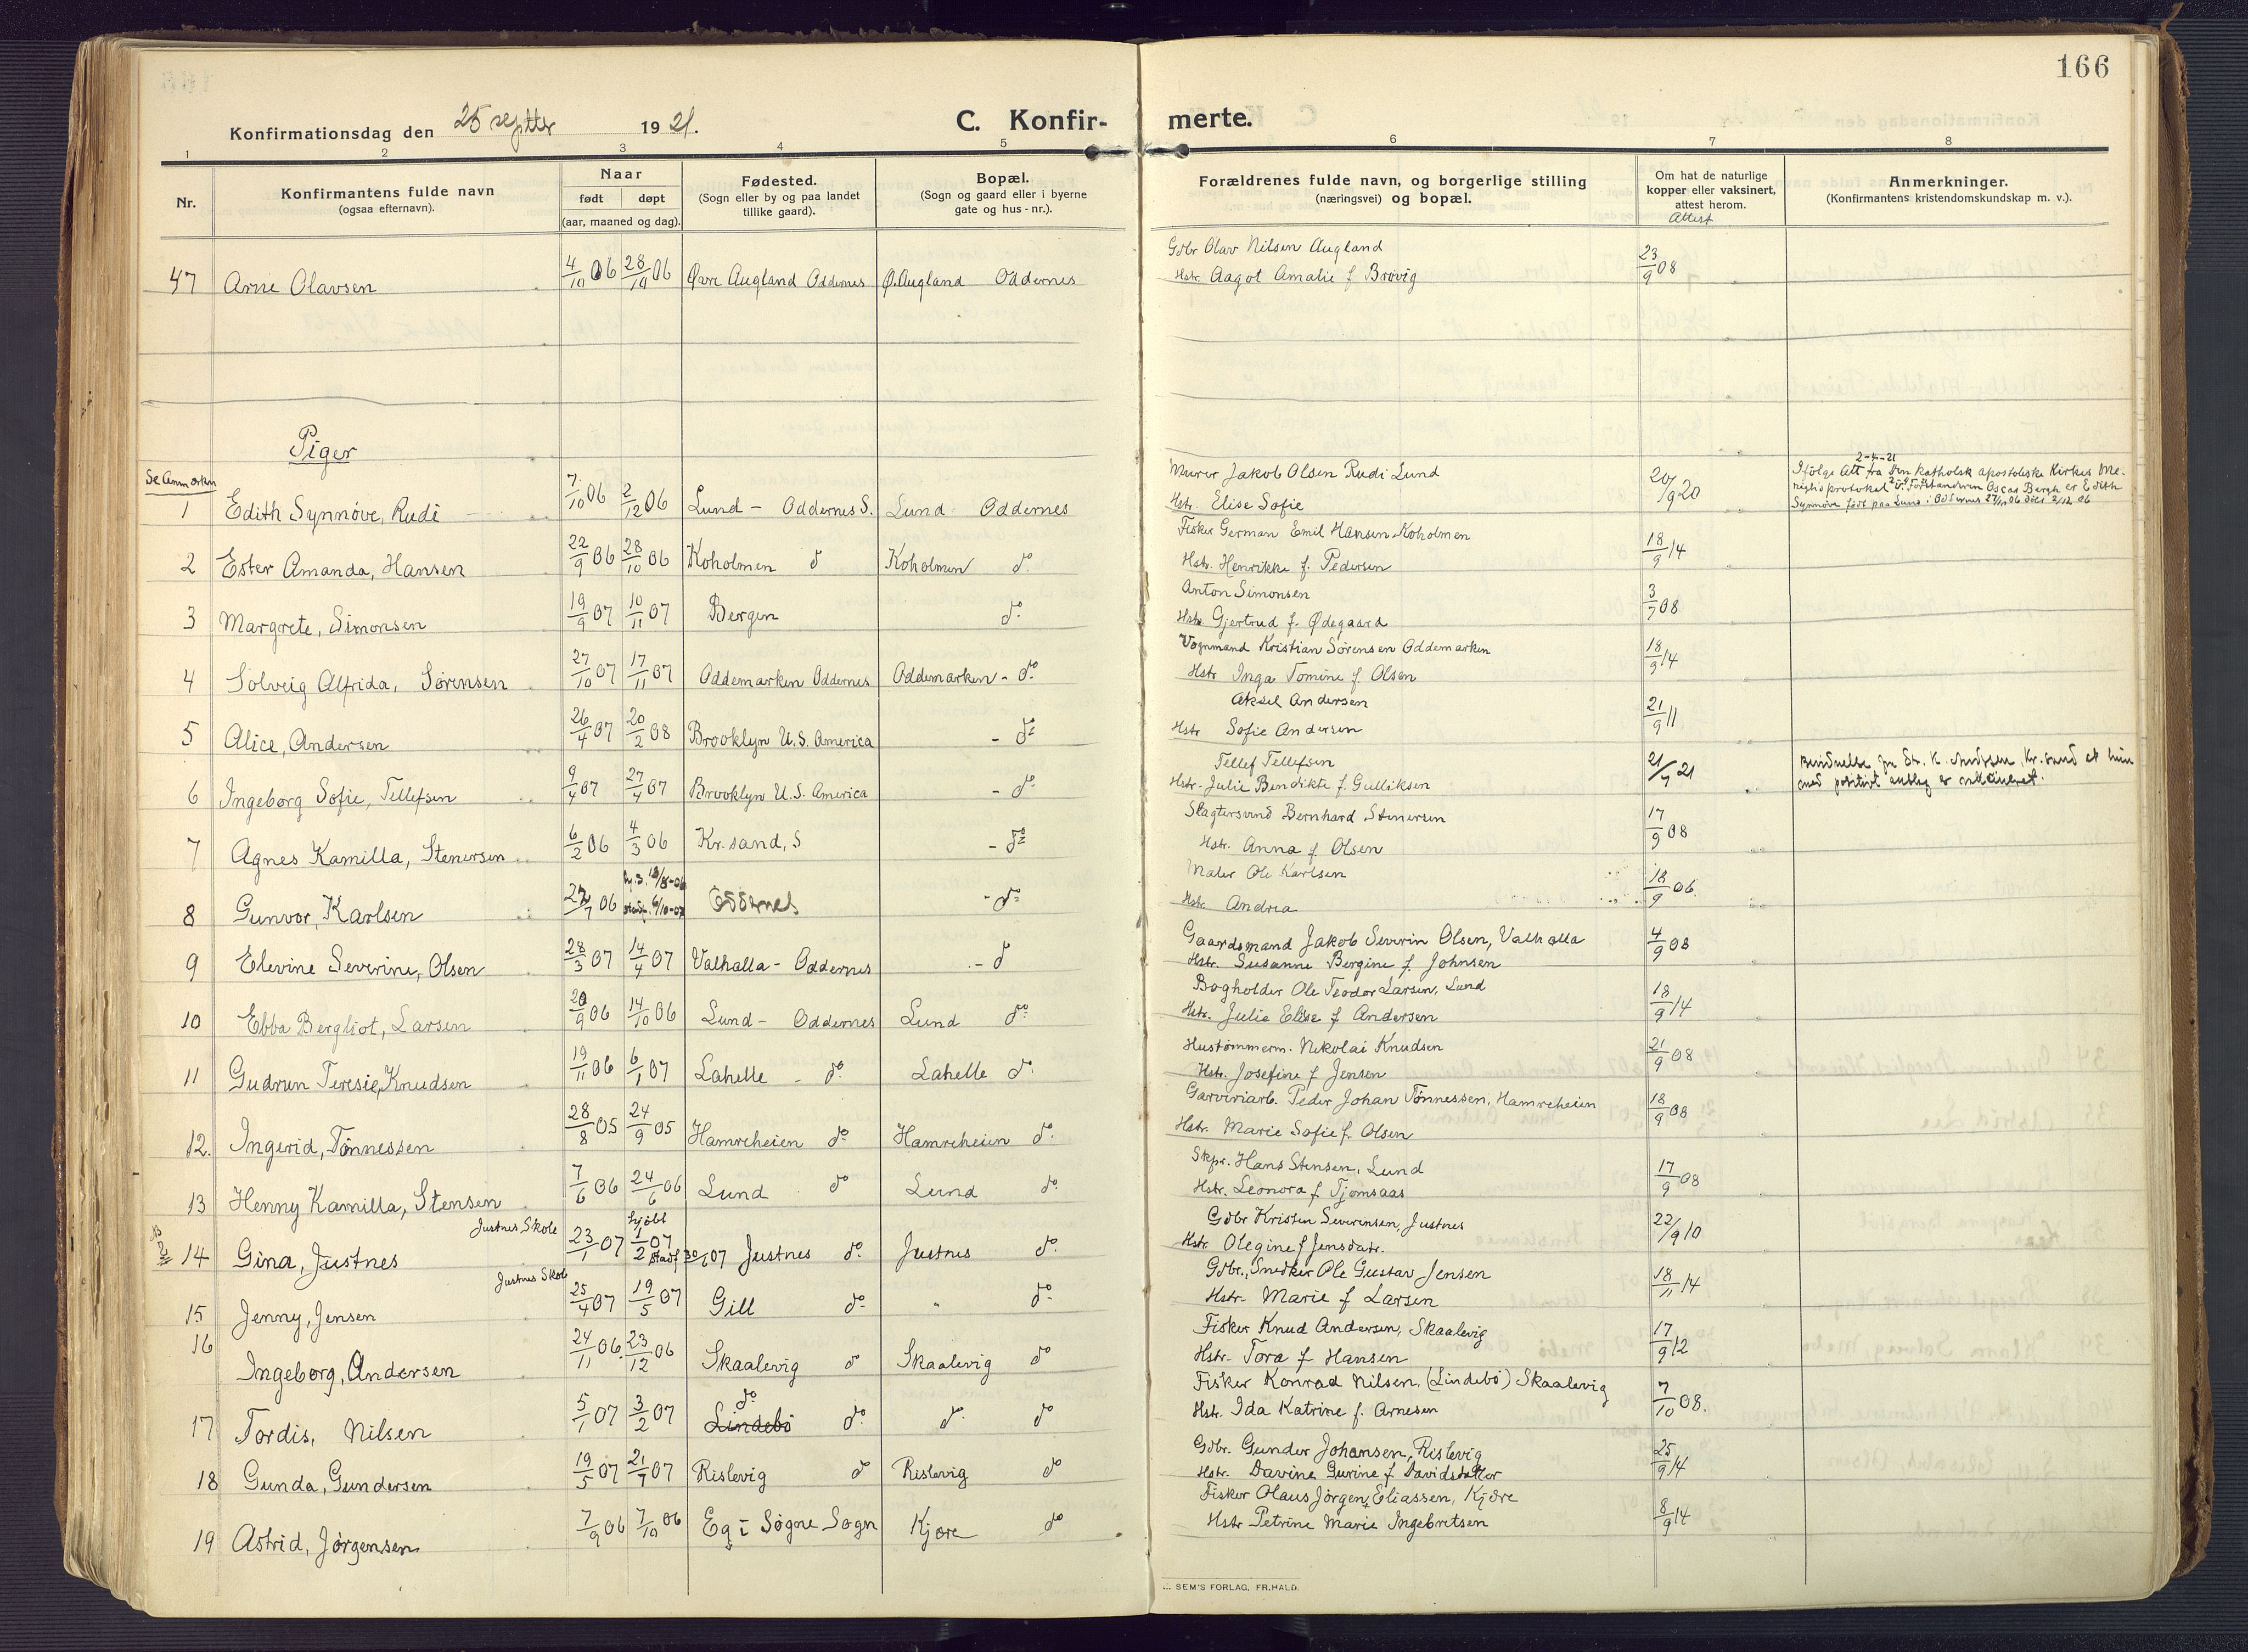 166
Konfirmationsdag den 25 septbr 1921.
C. Konfir- merte.
1 2 3 4 5 6 7 8
Nr.
Konfirmantens fulde navn
(ogsaa efternavn).
Naar
født døpt
(aar, maaned og dag).
Fødested.
(Sogn eller by og paa landet
tillike gaard).
Bopæl.
(Sogn og gaard eller i byerne
gate og hus-nr.).
Forældrenes fulde navn, og borgerlige stilling
(næringsvei) og bopæl.
Om hat de naturlige
kopper eller vaksinert,
attest herom.
Attest
Anmerkninger.
(Konfirmantens kristendomskundskap m. v.).
47 Arne Olavsen 4/10 06 28/10 06 Øvre Augland Oddernes Ø. Augland Oddernes
Gdbr Olav Nilsen Augland
Hstr. Aagot Amalie f Brøvig 23/9 08
Piger
Se Anmerkn
1 Edith Synnøve, Rudi 7/10 06 2/12 06 Lund - Oddernes S. Lund Oddernes
Murer Jakob Olsen Rudi Lund
Hstr. Elise Sofie 20/9 20
2-4-21
Ifølge Att fra den katholsk apostoliske Kirkes Me-
nigheds protokol v. Forstanderen Oscar Bergh er Edith
Synnøve født paa Lund i Oddernes 27/10 06 døbt 2/12 06
2 Ester Amanda, Hansen 22/9 06 28/10 06 Koholmen do Koholmen do
Fisker German Emil Hansen Koholmen
Hstr. Henrikke f. Pedersen 18/9 14
3 Margrete, Simonsen 19/9 07 10/11 07 Bergen do
Anton Simonsen
Hstr Gjertrud f. Ødegaard 3/7 08
4 Solveig Alfrida, Sørensen 27/10 07 17/11 07 Oddemarken Oddernes Oddemarken - do
Vognmand Kristian Sørensen Oddemarken
Hstr Inga Tomine f. Olsen 18/9 14
5 Alice, Andersen 26/4 07 20/2 08 Brooklyn U.S. America - do
Aksel Andersen
Hstr Sofie Andersen 21/9 11
6 Ingeborg Sofie, Tellefsen 9/4 07 27/4 07 Brooklyn U.S. America - do
Tellef Tellefsen
Hstr. Julie Bendikte f. Gulliksen 21/9 21
K. Kr.sand at hun
med positivt
7 Agnes Kamilla, Stenersen 6/2 06 4/3 06 Kr.sand, S - do
Slagtersvend Bernhard Stenersen
Hstr. Anna f. Olsen 17/9 08
8 Gunvor, Karlsen 27/7 06 Oddernes - do
Maler Ole Karlsen
Hstr. Andrea 18/9 06
9 Elevine Severine, Olsen 28/3 07 14/4 07 Valhalla - Oddernes - do
Gaardsmand Jakob Severin Olsen, Valhalla
Hstr. Susanne Bergine f. Johnsen 4/9 08
10 Ebba Bergliot, Larsen 20/9 06 14/10 06 Lund - Oddernes Lund do
Bogholder Ole Teodor Larsen, Lund
Hstr. Julie Elise f Andersen 18/9 14
11 Gudrun Teresie, Knudsen 19/11 06 6/1 07 Lahelle - do Lahelle do
Hustømmerm. Nikolai Knudsen
Hstr. Josefine f Jensen 21/9 08
12. Ingerid, Tønnessen 28/8 05 24/9 05 Hamreheien do Hamreheien do
Garveriarb. Peder Johan Tønnessen, Hamreheien
Hstr. Marie Sofie f. Olsen 18/9 08
13 Henny Kamilla, Stensen 7/6 06 24/6 06 Lund do Lund do
Skpr. Hans Stensen, Lund
Hstr. Leonora f Tjomsaas 17/9 08
Justnes Skole
14 Gina, Justnes 23/1 07 hjdbt 1/2 07 stadf 30/6 07 Justnes do Justnes do
Gdbr Kristen Severinsen, Justnes
Hstr. Olegine f Jensdatr. 22/9 10
Justnes Skole
15 Jenny, Jensen 25/4 07 19/5 07 Gill do " do
Gdbr., Snedker Ole Gustav Jensen
Hstr. Marie f Larsen 18/11 14
16 Ingeborg, Andersen 24/11 06 23/12 06 Skaalevig do Skaalevig do
Fisker Knud Andersen, Skaalevig
Hstr. Tora f Hansen 17/9 12
17 Tordis, Nilsen 5/1 07 3/2 07 do Lindebö do do do
Fisker Konrad Nilsen, (Lindebö) Skaalevig
Hstr. Ida Katrine f. Arnesen 7/10 08.
18 Gunda, Gundersen 19/5 07 21/7 07 Rislevig do Rislevig do
Gdbr. Gunder Johansen, Rislevig
Hstr. Davine Gurine f Davidsdatter 25/9 14
19 Astrid, Jørgensen 7/9 06 7/10 06 Eg i Søgne Sogn Kjøre do
Fisker Olaus Jörgen Eliassen, Kjöre
Hstr Petrine Marie Ingebretsen 8/9 14
SEM'S FORLAG, FR.HALD.